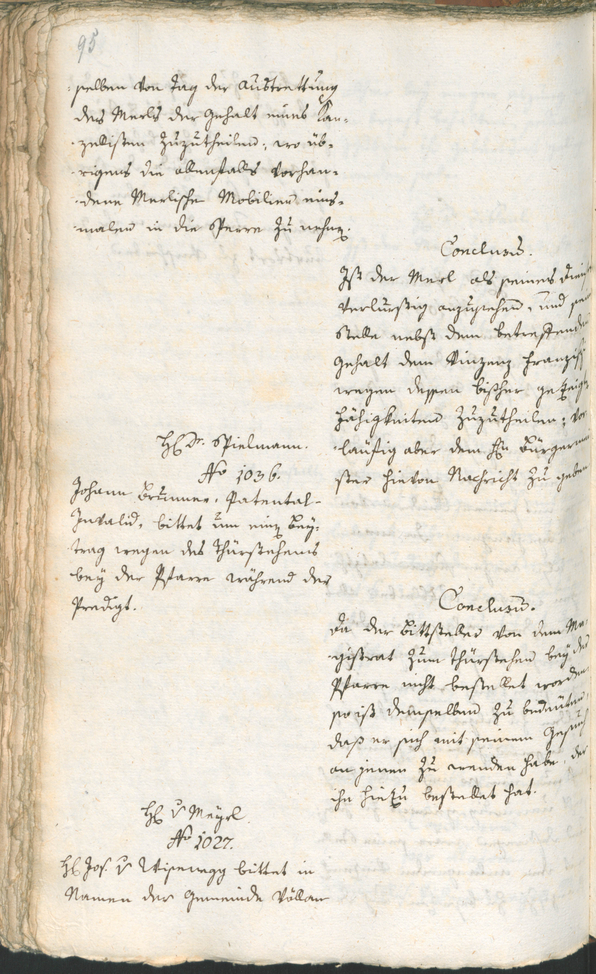 95
selben von Tag der Austrettung
des Merls der Gehalt eines Kan-
zellisten zuzutheilen, wo üb-
rigens die allenfalls vorhan-
dene Merlische Mobilien eins-
malen in die Sperre zu nehmen.
Conclusum.
Ist der Merl als seines Dienst
verlurstig anzusehen, und sein
Stelle nebst dem betreffenden
Gehalt dem Vinzenz
wegen dessen bisher gezeigten
Fähigkeiten zuzutheilen, vor-
läufig aber dem H. Bürgermei-
ster hievon Nachricht zu geben
H. Dr. Spielmann.
No 1036.
Johann Brunner, Patental-
Invalid, bittet um einen Bey-
trag wegen des Thürstehens
bey der Pfarre während der
Predigt.
Conclusum.
Da der Bittsteller von dem Ma-
gistrat zum Thürstehen bey der
Pfarre nicht bestellet worden
so ist demselben zu bedeuten,
daß er sich mit seinem Gesuch
an jenen zu wenden habe, der
ihn hiezu bestellet hat.
H. v. Mayrl.
No 1027.
H. Jos. v. bittet in
Namen der Gemeinde Völlan